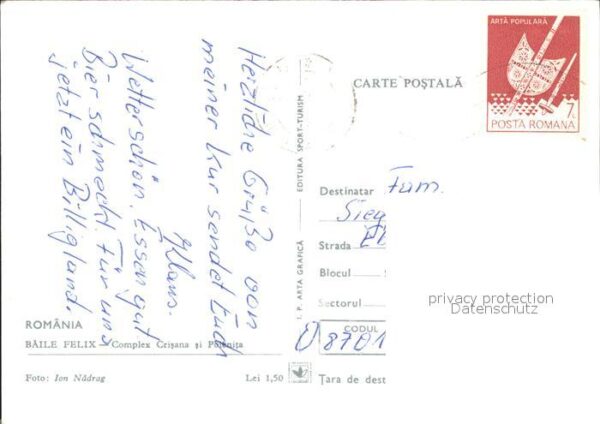 ARTĂ POPULARĂ
7L
POSTA ROMANA
CARTE POȘTALĂ
Herzliche Grüße von
meiner Kur sendet Euch
Klaus.
Wetter schön. Essen gut
Bier schmeckt. Für uns
jetzt ein Billigland.
EDITURA SPORT-TURISM
I. P. ARTA GRAFICĂ
Destinatar Fam.
Sieg
Strada
Blocul
Sectorul
CODUL
D 8701
Țara de dest
privacy protection
Datenschutz
ROMÂNIA
BĂILE FELIX - Complex Crișana și Poienița
Foto: Ion Nădrag
Lei 1,50